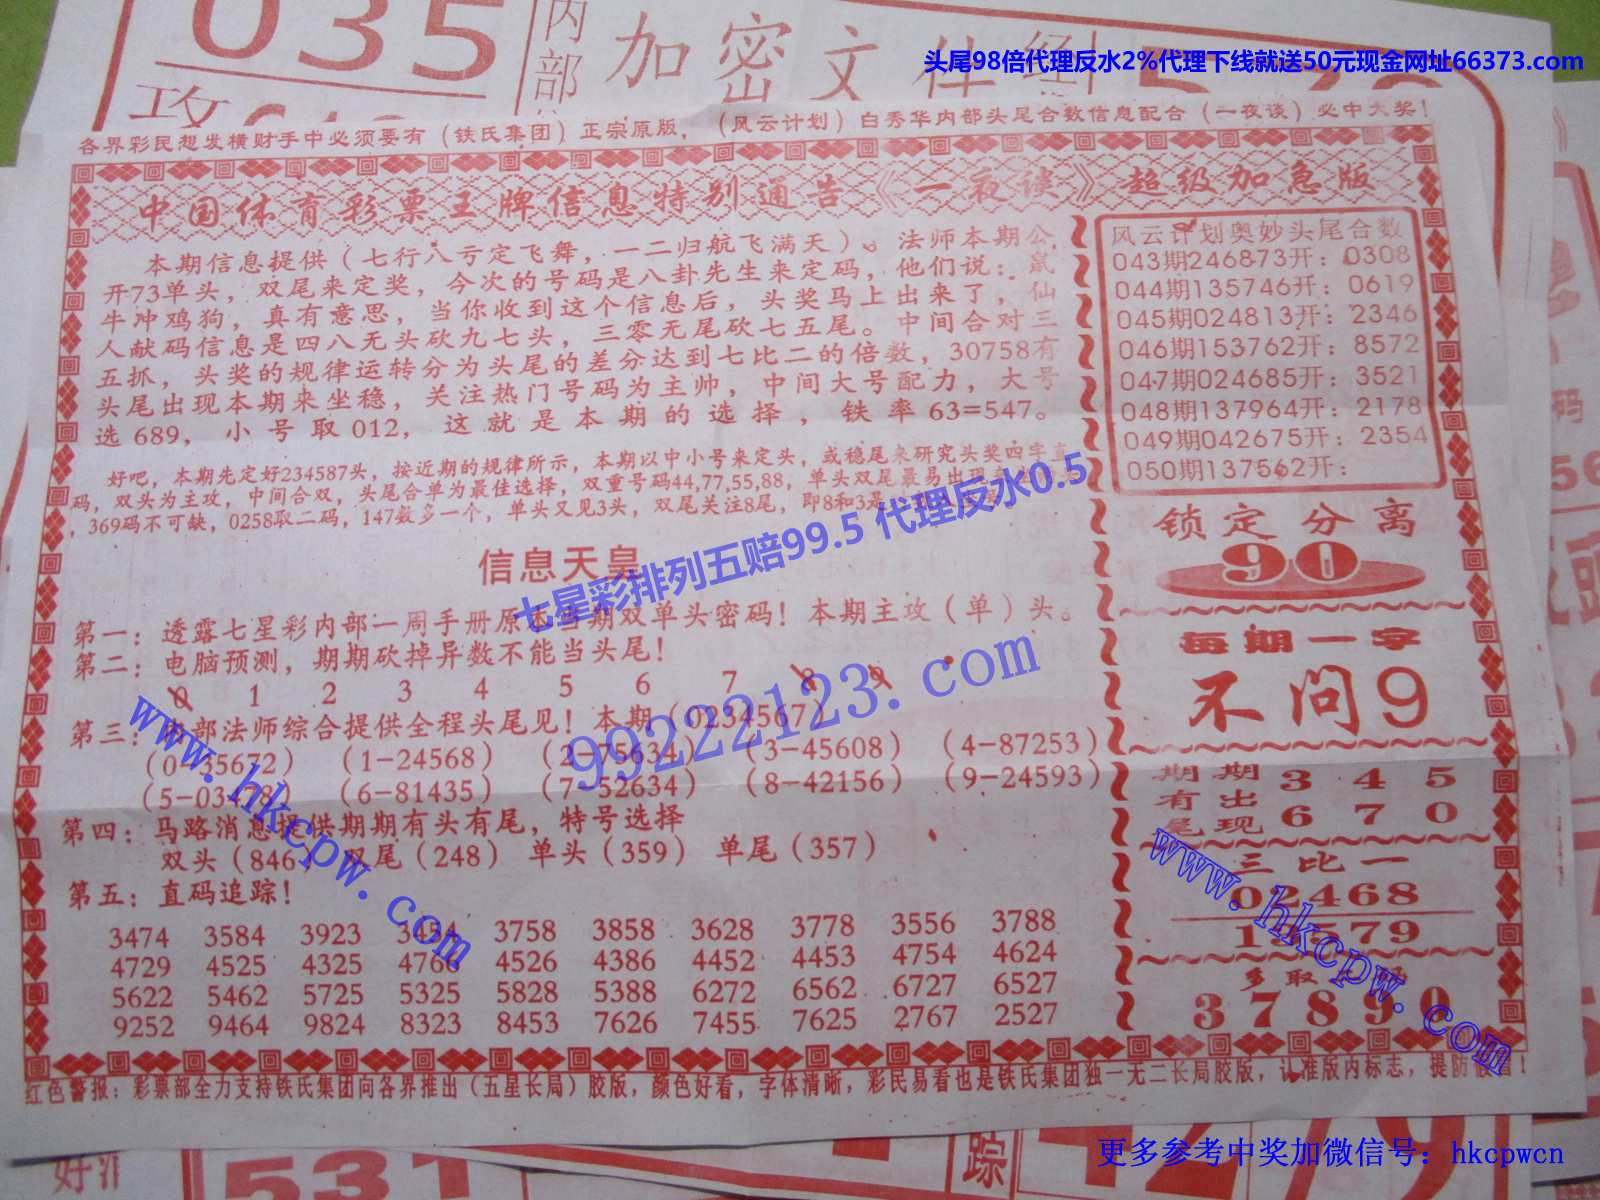 035
内部
加密文件
头尾98倍代理反水2%代理下线就送50元现金网址66373.com
各界彩民想发横财手中必须要有（铁氏集团）正宗原版，（风云计划）白秀华内部头尾合数信息配合（一夜谈）必中大奖！
中国体育彩票王牌信息特别通告《一夜谈》超级加急版
本期信息提供（七行八亏定飞舞，一二归航飞满天）。法师本期公
开73单头，双尾来定奖，今次的号码是八卦先生来定码，他们说：鼠
牛冲鸡狗，真有意思，当你收到这个信息后，头奖马上出来了，仙
人献码信息是四八无头砍九七头，三零无尾砍七五尾。中间合对三
五抓，头奖的规律运转分为头尾的差分达到七比二的倍数，30758有
头尾出现本期来坐稳，关注热门号码为主帅，中间大号配力，大号
选689，小号取012，这就是本期的选择，铁率63=547。
好吧，本期先定好234587头，按近期的规律所示，本期以中小号来定头，或稳尾来研究头奖四字直
码，双头为主攻，中间合双，头尾合单为最佳选择，双重号码44,77,55,88，单头双尾最易出现
，369码不可缺，0258取二码，147数多一个，单头又见3头，双尾关注8尾，即8和3是
七星彩排列五赔99.5 代理反水0.5
信息天皇
第一：透露七星彩内部一周手册原本当期双单头密码！本期主攻（单）头。
第二：电脑预测，期期砍掉异数不能当头尾！
0 1 2 3 4 5 6 7 8 9
第三：内部法师综合提供全程头尾见！本期（0234567）
(0-35672) (1-24568) (2-75634) (3-45608) (4-87253)
(5-03478) (6-81435) (7-52634) (8-42156) (9-24593)
第四：马路消息提供期期有头有尾，特号选择
双头（846） 双尾（248） 单头（359） 单尾（357）
第五：直码追踪！
3474 3584 3923 3454 3758 3858 3628 3778 3556 3788
4729 4525 4325 4766 4526 4386 4452 4453 4754 4624
5622 5462 5725 5325 5828 5388 6272 6562 6727 6527
9252 9464 9824 8323 8453 7626 7455 7625 2767 2527
99222123.com
www.hkcpw.com
风云计划奥妙头尾合数
043期246873开：0308
044期135746开：0619
045期024813开：2346
046期153762开：8572
047期024685开：3521
048期137964开：2178
049期042675开：2354
050期137562开：
锁定分离
90
每期一字
不问9
期期有出尾现
3 4 5
6 7 0
三比一
02468
13579
多取
37890
www.hkcpw.com
红色警报：彩票部全力支持铁氏集团向各界推出（五星长局）胶版，颜色好看，字体清晰，彩民易看也是铁氏集团独一无二长局胶版，认准版内标志，提防假冒！
更多参考中奖加微信号：hkcpwcn
531
踪
4279